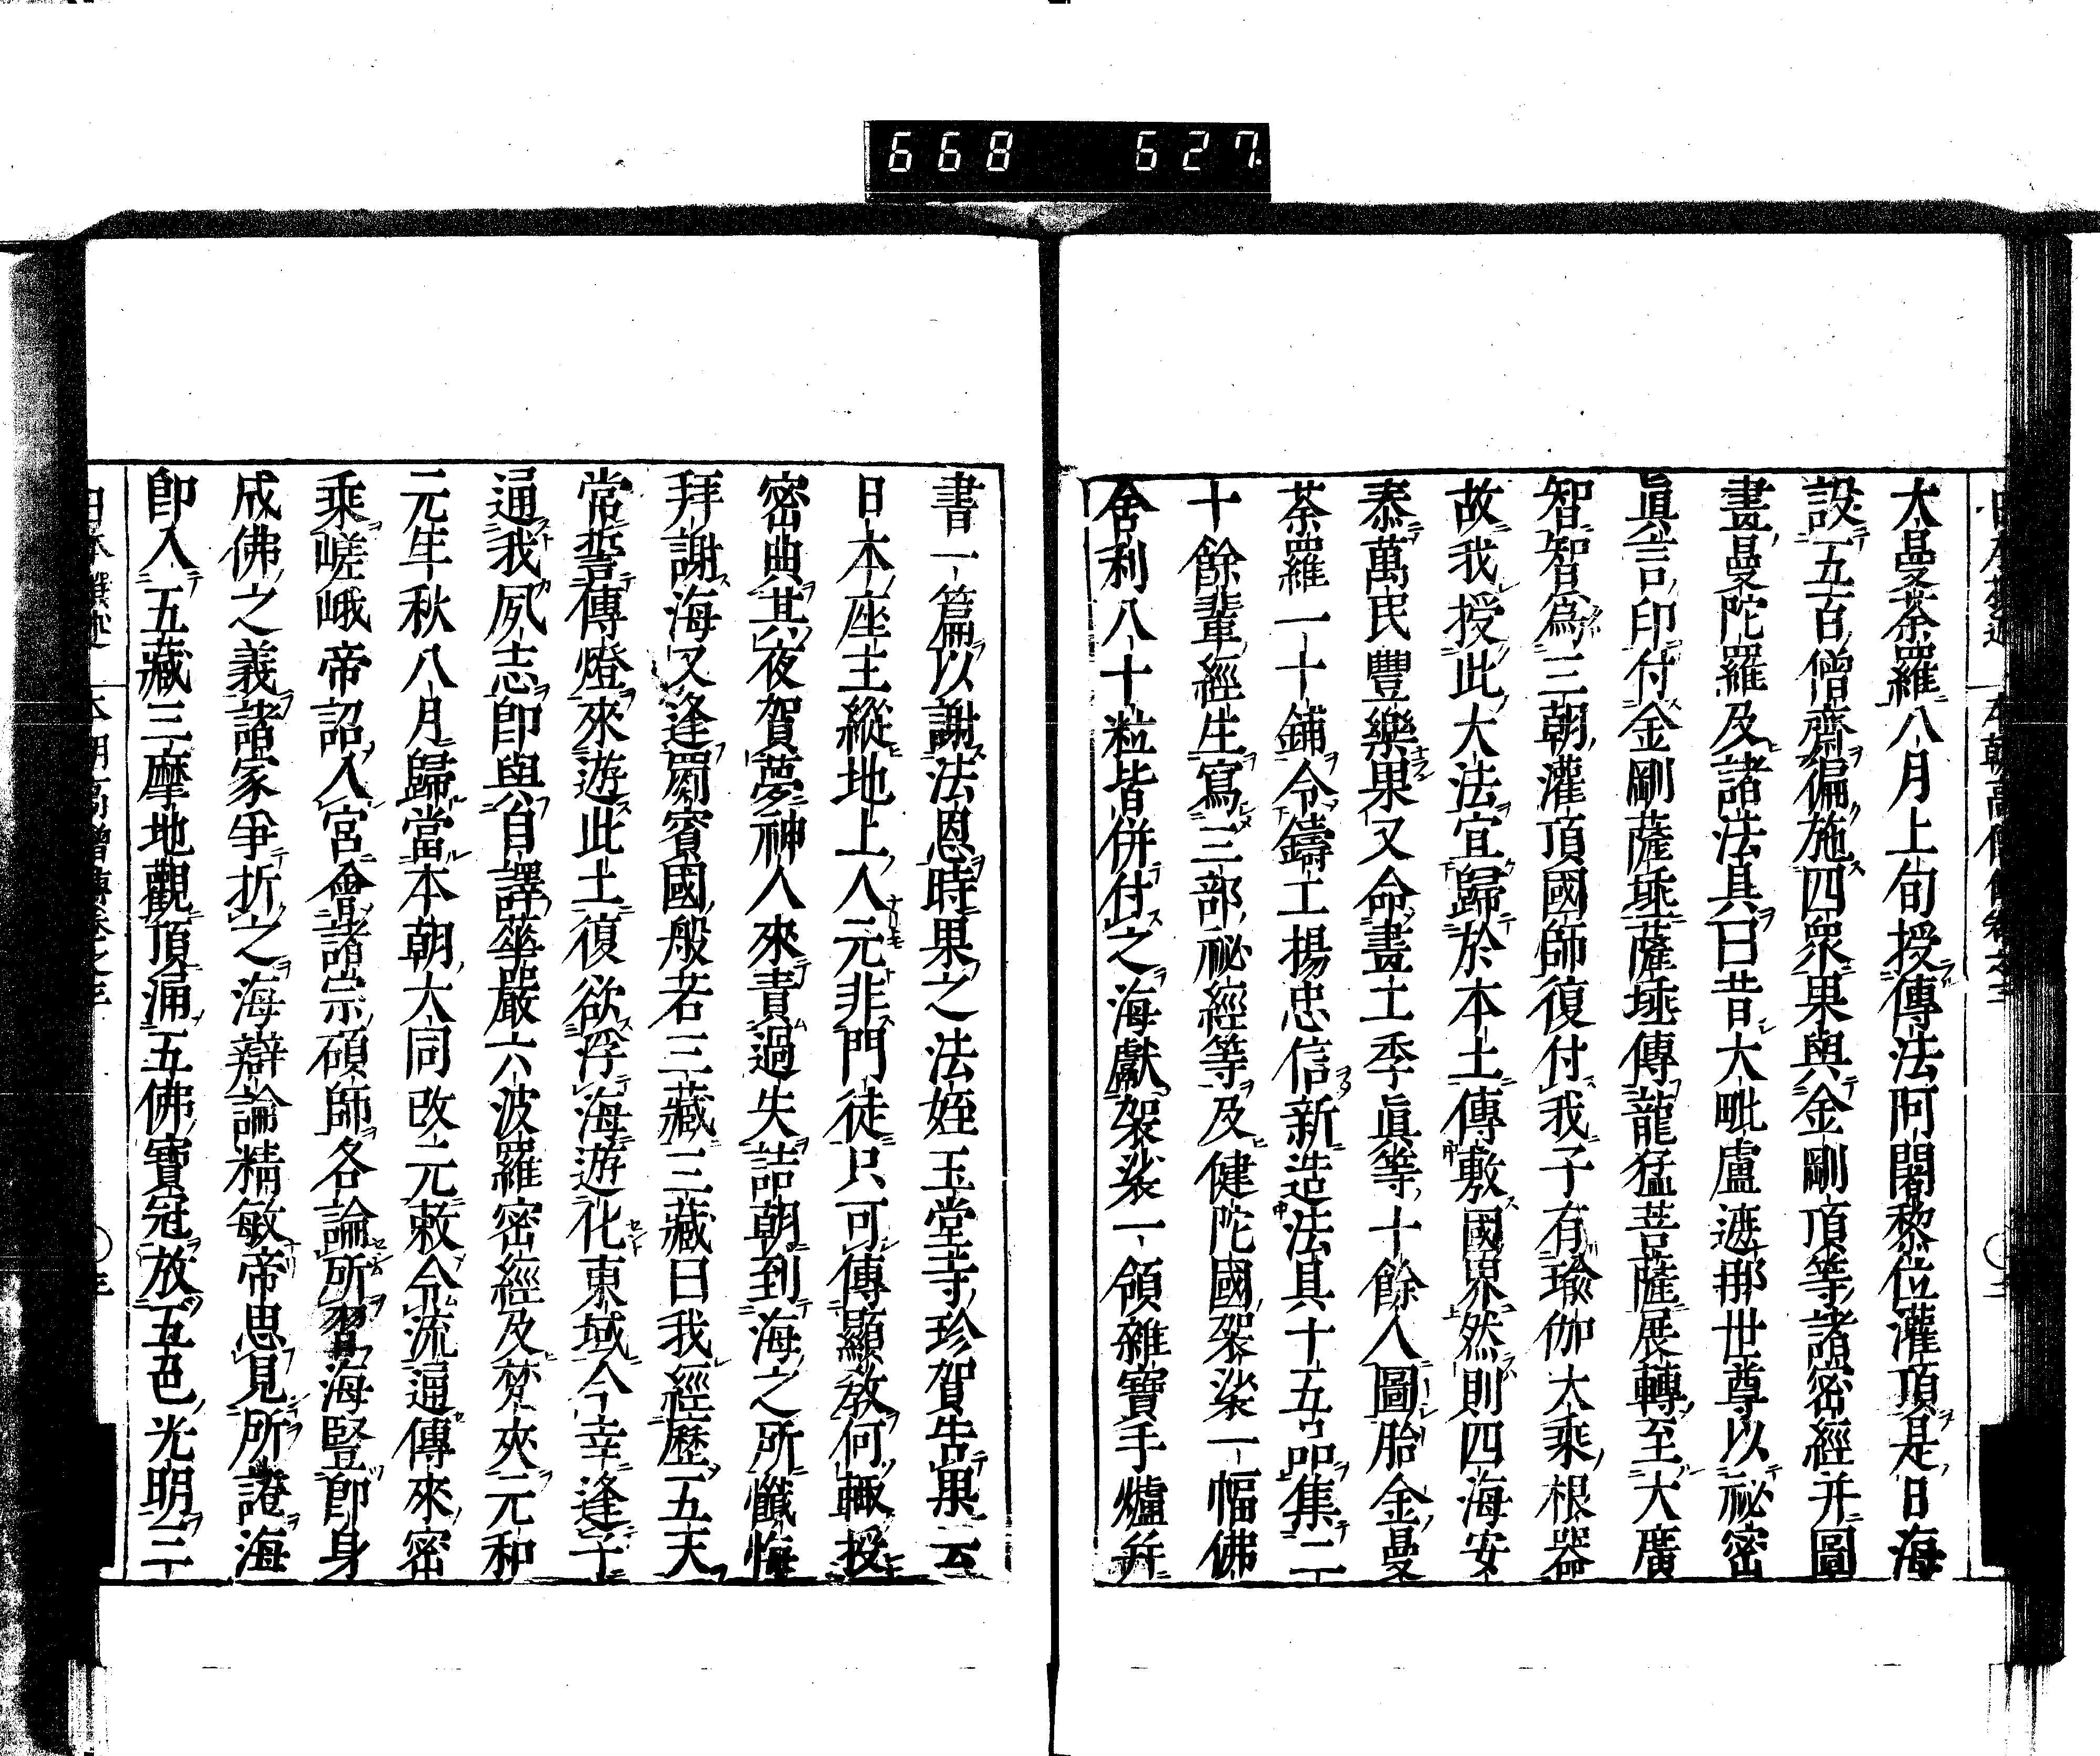 668 627
大曼荼羅八月上旬授傳法阿闍黎位灌頂是日海
設五百僧齋偏施四眾果與金剛頂等諸密經并圖
畫曼陀羅及諸法具曰昔大毗盧遮那世尊以祕密
眞言印付金剛薩埵薩埵傳龍猛菩薩展轉至大廣
智智爲三朝灌頂國師復付我子有瑜伽大乘根器
故我授此大法宜歸於本土傳敷國界然則四海安
泰萬民豐樂果又命畫士季眞等十餘人圖胎金曼
荼羅一十鋪令鑄工揚忠信新造法具十五品集二
十餘輩經生寫三部祕經等及健陀國袈裟一幅佛
舍利八十粒皆併付之海獻袈裟一領雜寶手爐并
書一篇以謝法恩時果之法姪玉堂寺珍賀告果云
日本座主縱地上人元非門徒只可傳顯教何輙授
密曲其夜賀夢神人來責過失詰朝到海之所懺悔
拜謝海又逢罽賓國般若三藏三藏曰我經歷五天
常誓傳燈來遊此土復欲浮海遊化東域今幸逢子
通我夙志即與自譯華嚴六波羅密經及梵夾元和
元年秋八月歸當本朝大同改元敕令流逼傳來密
乘嵯峨帝詔入宮會諸宗碩師各論所習海豎即身
成佛之義諸家爭折之海辯論精敏帝思見所證海
即入五藏三摩地觀頂涌五佛寶冠放五色光明三
本朝高僧傳卷之三